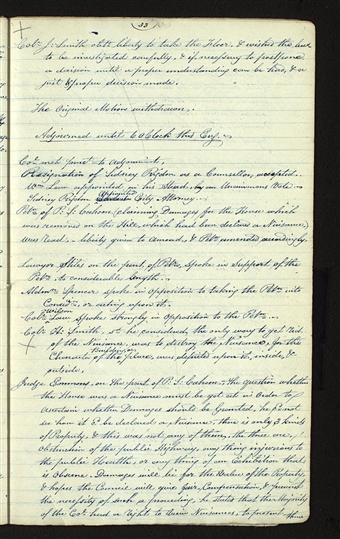 33
Colr. J. Smith obtd. liberty to take the Floor, & wishes the bus
to be investigated carefully, & if necessary to postpone
a decision until a proper understanding can be had, & a
just & proper decision made.
The Original Motion withdrawn.
Adjourned until 6 o'Clock this Evg.
Col. met purst. to adjournment.
Resignation of Sidney Rigdon as a Counsellor, accepted.
Wm. Law appointed in his Stead, by an Unanimous Vote.
Sidney Rigdon appointed City Attorney.
Petn. of P. S. Cahoon, claiming Damages for the House which
was removed on the Hill, which had been declared a Nuisance,
was Read. liberty given to amend, & Petn. amended accordingly.
Lawyer Stiles on the part of Petr. spoke in Support of the
Petn. to considerable length.
Aldn. Spencer spoke in opposition to taking the Petn. into
Considn. or acting upon it.
Colr. Wilson
Law spoke strongly in opposition to the Petn.
Colr. H. Smith, sd. he considered, the only way to get rid
of the Nuisance, was to destroy the Nuisance, for the
Character of the Building was depicted upon it, inside, &
outside,
Judge Emmons, on the part of P. S. Cahoon, the question whether
the House was a Nuisance must be got at in Order to
ascertain whether Damages should be Granted, he co'd not
see how it co'd be declared a Nuisance, there is only 3 kinds
of Property, & this was not any of them, the three are,
Obstruction of the public Highway, any thing injurious to
the public Health, or any thing of an Exhibition that
is Obscene. Damages will lie for the Value of the Property,
& hopes the Council will give Compensation, & prevent
the necessity of such a proceeding, he states that the Majority
of the Col. had a right to Drain Nuisances, to prevent